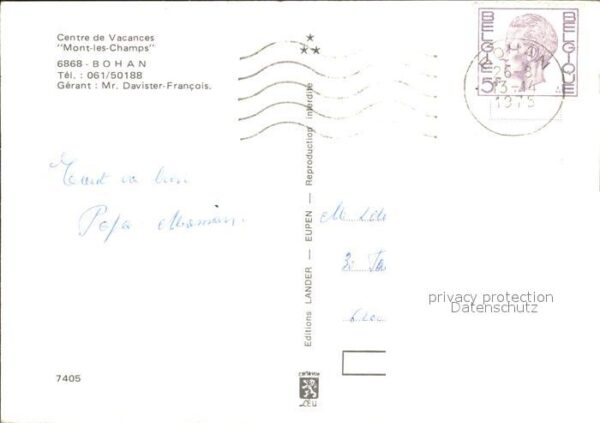 Centre de Vacances
"Mont-les-Champs"
6868 - BOHAN
Tél. : 061/50188
Gérant : Mr. Davister-François.
BELGIE BELGIQUE
5F
BOHAN
13-14
1975
Tout va bien
Papa Maman.
Editions LANDER — EUPEN — Reproduction interdite
M
privacy protection
Datenschutz
7405